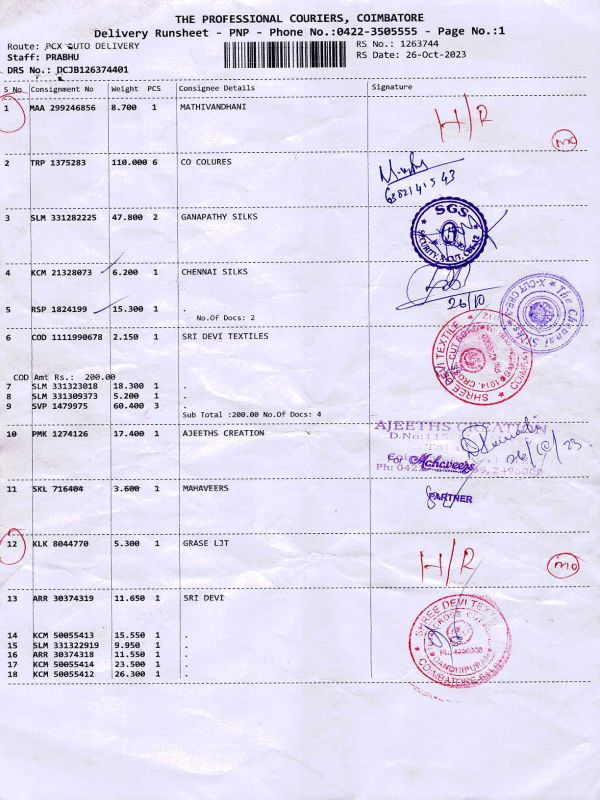 THE PROFESSIONAL COURIERS, COIMBATORE
Delivery Runsheet - PNP - Phone No.:0422-3505555 - Page No.:1
Route: PCX AUTO DELIVERY RS No.: 1263744
Staff: PRABHU RS Date: 26-Oct-2023
DRS No.: DCJB126374401
S No Consignment No Weight PCS Consignee Details Signature
1 MAA 299246856 8.700 1 MATHIVANDHANI
H/R
2 TRP 1375283 110.000 6 CO COLURES
3 SLM 331282225 47.800 2 GANAPATHY SILKS
SGS
4 KCM 21328073 6.200 1 CHENNAI SILKS
5 RSP 1824199 15.300 1 .
No.Of Docs: 2
26/10
The Chennai Silks
6 COD 1111990678 2.150 1 SRI DEVI TEXTILES
SHREE DEVI TEXTILE
COD Amt Rs.: 200.00
7 SLM 331323018 18.300 1 .
8 SLM 331309373 5.200 1 .
9 SVP 1479975 60.400 3 .
Sub Total :200.00 No.Of Docs: 4
10 PMK 1274126 17.400 1 AJEETHS CREATION
AJEETHS CREATION
26/10/23
11 SKL 716404 3.600 1 MAHAVEERS
For Mahaveers
PARTNER
12 KLK 8044770 5.300 1 GRASE LJT
H/R
13 ARR 30374319 11.650 1 SRI DEVI
SHREE DEVI TEXTILE
14 KCM 50055413 15.550 1 .
15 SLM 331322919 9.950 1 .
16 ARR 30374318 11.550 1 .
17 KCM 50055414 23.500 1 .
18 KCM 50055412 26.300 1 .